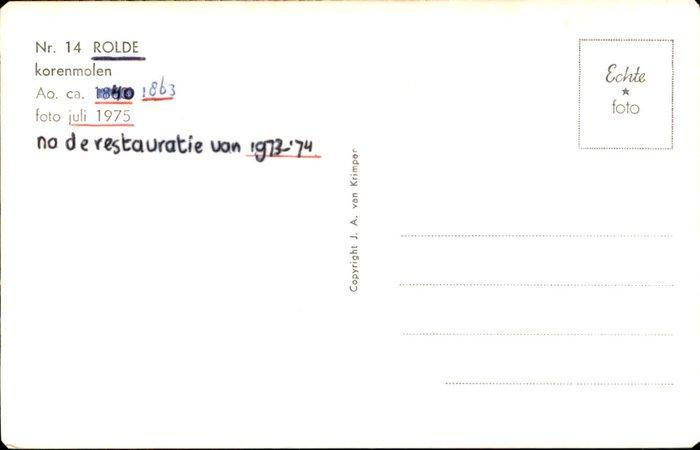 Nr. 14 ROLDE
korenmolen
Ao. ca. 1840 1863
foto juli 1975
na de restauratie van 1973-'74
Echte
foto
Copyright J. A. van Krimpen